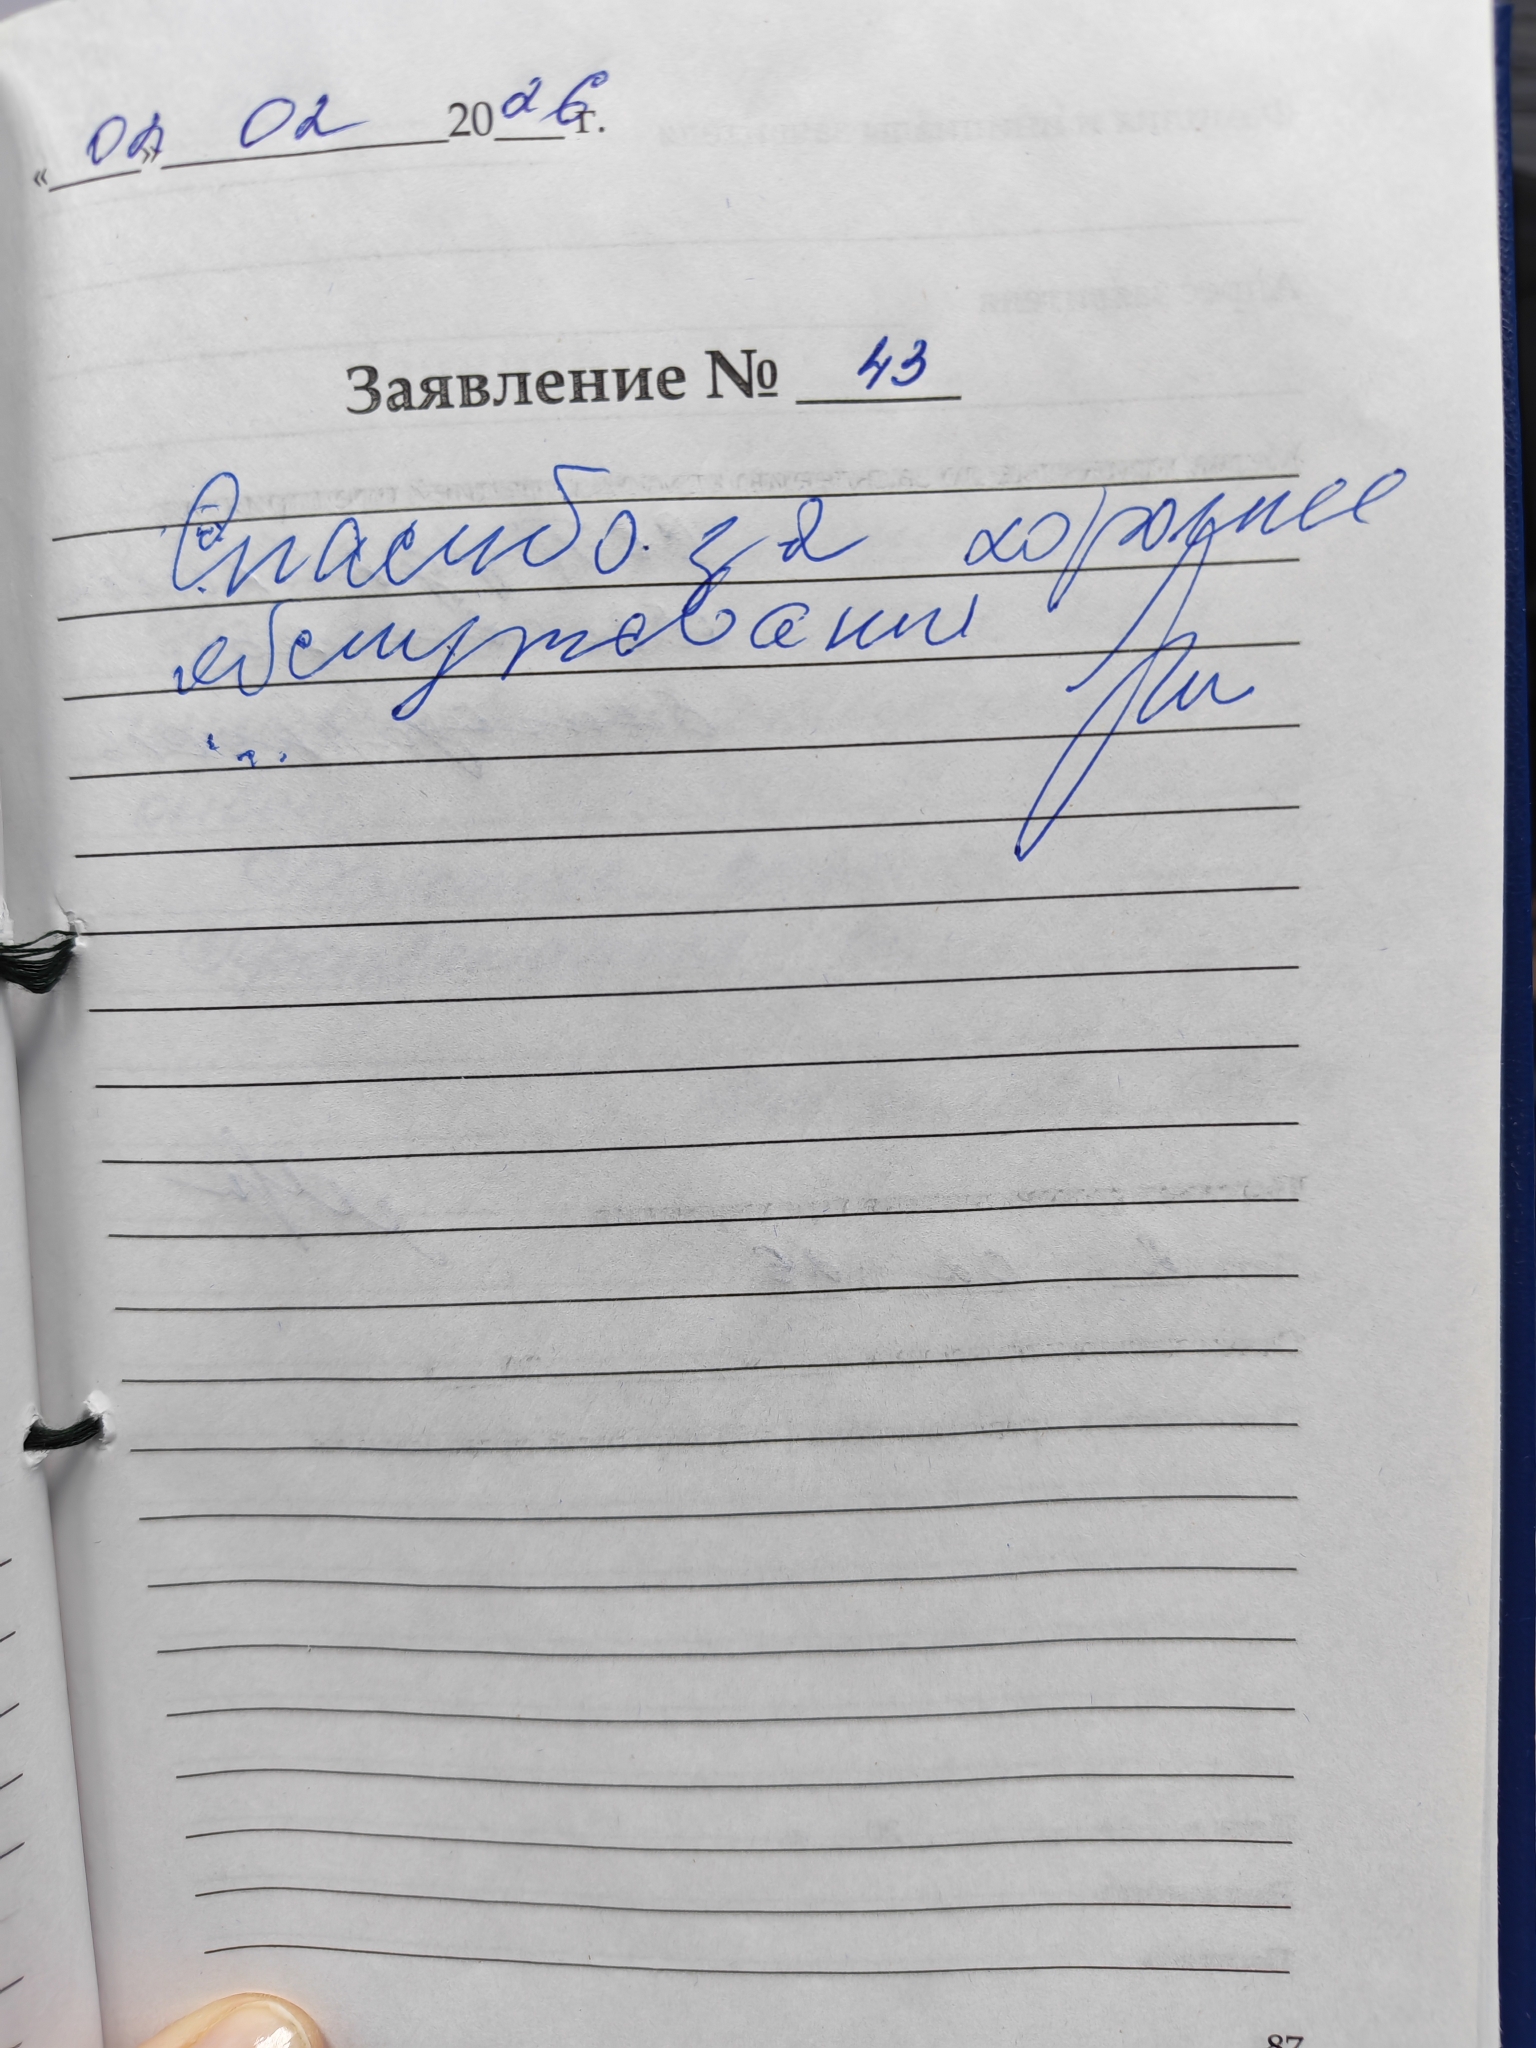 «02» 02 2026 г.
Заявление № 43
Спасибо за хорошее
обслуживание
87